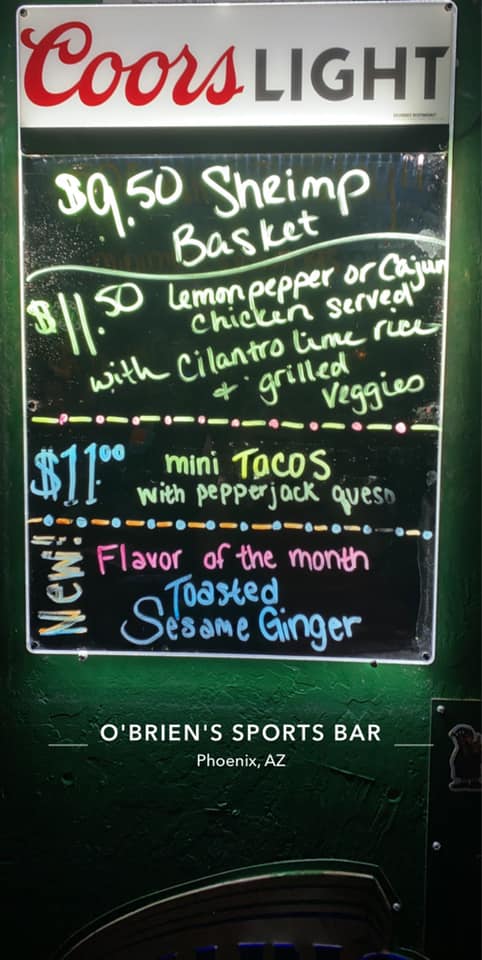 Coors LIGHT
$9.50 Shrimp
Basket
$11.50 Lemon pepper or Cajun
chicken served
with Cilantro lime rice
+ grilled
Veggies
$11.00 mini TACOS
with pepperjack queso
New! Flavor of the month
Toasted
Sesame Ginger
O'BRIEN'S SPORTS BAR
Phoenix, AZ